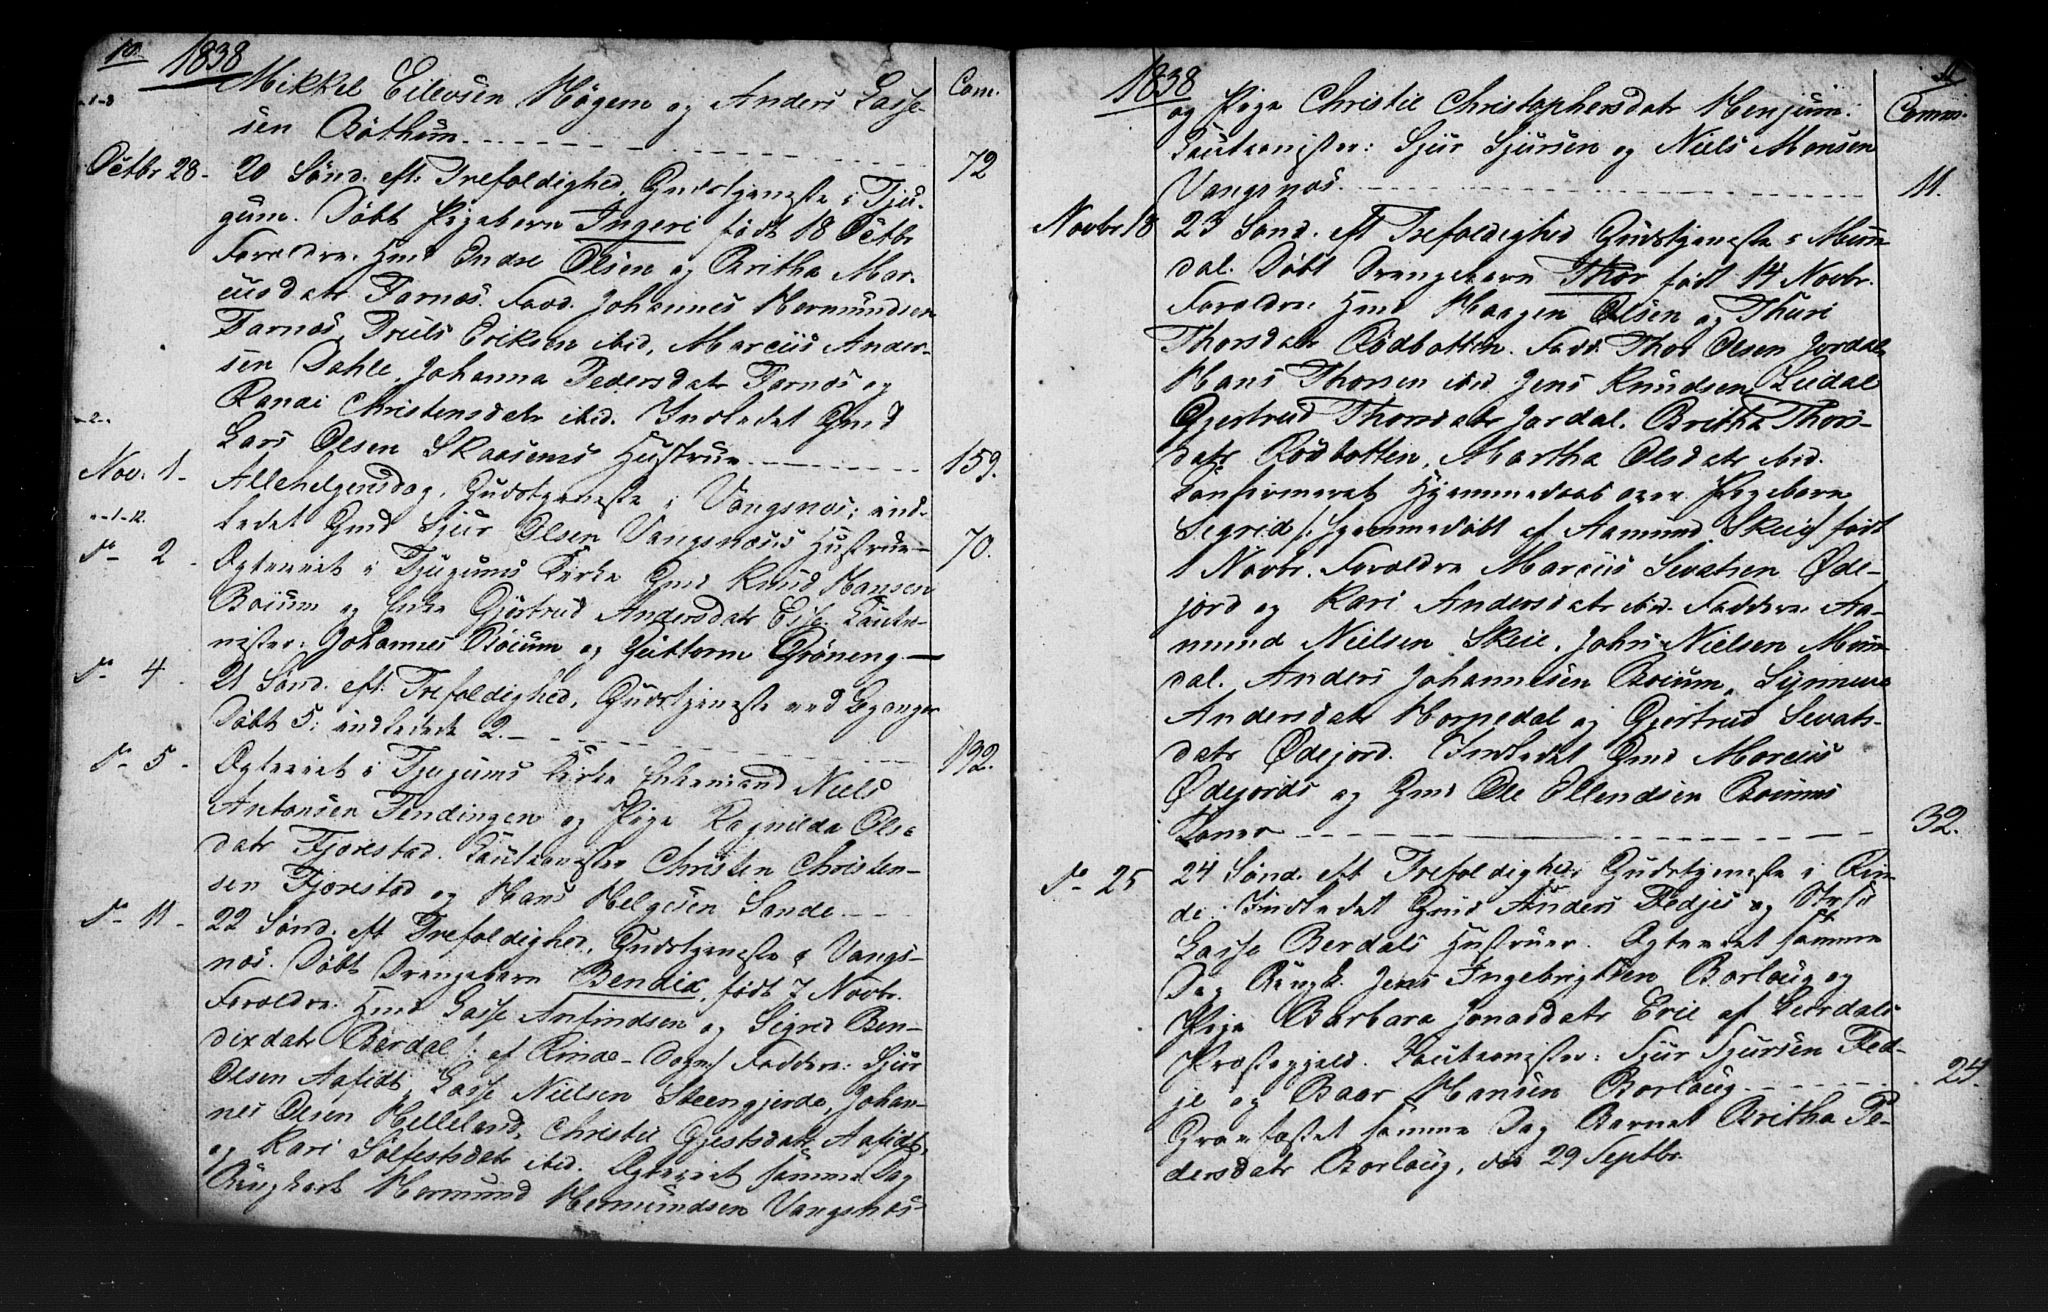 10 1838
Mikkel Eilevsen Högem og Anders Lasse- Com.
sen Böthum
Octbr 28 - 20 Sönd. eft: Trefoldighed, Gudstjeneste i Tju- 72
gum. Döbt Pigebarn Ingeri født 18 Octbr
Foreldre: Gmd Endre Olsen og Britha Mar-
cusdatr Farnæs. Fadd. Johannes Hermundsen
Farnæs, Truls Eriksen ibid, Marcus Ander-
sen Dahle, Johanna Pedersdatr Farnæs og
Randi Christensdatr ibid. Indledet Gmd
Lars Olsen Skaasems Hustrue 159.
Nov. 1 - Allehelgensdag, Gudstjeneste i Vangsnæs; ind-
ledet Gmd Sjur Olsen Vangsnæses Hustrue 70.
d° 2 - Ægteviet i Tjugums Kirke Gmd Knud Hansen
Böium og Enke Gjertrud Andersdatr Esse. Cauto-
nister: Johannes Böium og Guttorm Gröneng
d° 4 - 21 Sönd. eft: Trefoldighed, Gudstjeneste ved Leganger
Döbt 5; indledede 2. 192.
d° 5 - Ægteviet i Tjugums Kirke Enkemand Niels
Antonsen Fendingen og Pige Ragnilda Ols-
datr Fjorestad. Cautionister Christen Christen-
sen Fjorestad og Hans Helgesen Sande
d° 11 - 22 Sönd. eft Trefoldighed, Gudstjeneste i Vangs-
næs. Döbt Drengebarn Bendix, født 7 Novbr.
Foreldre: Gmd Lasse Anfindsen og Sigrid Ben-
dixdatr Berdal /: af Rinde-Sogn:/ Faddere: Sjur
Olsen Aafedt, Lasse Nielsen Steengjerde, Johan-
nes Olsen Helleland, Christie Gjestsdatr Aafedt
og Kari Sölfestsdatr ibid. Ægteviet samme Dag
Ungkarl Hermund Hermundsen Vangsnæs
1838 11
og Pige Christie Christophersdatr Henjum. Comm.
Cautionister: Sjur Sjursen og Niels Monsen
Vangsnæs. 11.
Novbr 18 23 Sönd. eft Trefoldighed Gudstjeneste i Mun-
dal. Döbt Drengebarn Thor født 14 Novbr.
Foreldre: Hmd Haagen Olsen og Thuri
Thorsdatr Rödbotten. Fadd. Thor Olsen Jordal,
Hans Thorsen ibid Jens Knudsen Lidal
Gjertrud Thorsdatr Jordal. Britha Thors-
datr Rödbotten, Martha Olsdatr ibid.
Confirmeret Hjemmedaab over Pigebarn
Sigrid /: hjemmedöbt af Aamund Skeie/ født
1 Novbr. Foreldre Marcus Sevatsen Øde-
jord og Kari Andersdatr ibid. Faddere Aa-
mund Nielsen Skeie, John Nielsen Mun-
dal. Anders Johannesen Böium, Synneve
Andersdatr Horpedal og Gjertrud Sevats-
datr Ødejord. Indledet Gmd Marcus
Ødejords og Gmd Ole Ellendsen Böiums
Koner 32.
d° 25 24 Sönd. eft Trefoldighed Gudstjeneste i Rin-
de. Indledet Gmd Anders Fedjes og Strsd
Lasse Berdals Hustruer. Ægteviet samme
Dag Ungk. Jens Ingebrigtsen Borlaug og
Pige Barbara Jonasdatr Erie af Leirdals
Præstegjeld. Cautionister: Sjur Sjursen Fed-
je og Baar Hansen Borlaug 24.
Gravfæstet samme Dag Barnet Britha Pe-
dersdatr Borlaug, död 29 Septbr.